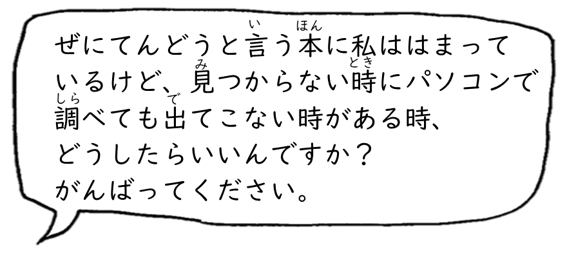 ぜにてんどうと言う本に私ははまって
いるけど、見つからない時にパソコンで
調べても出てこない時がある時、
どうしたらいいんですか？
がんばってください。